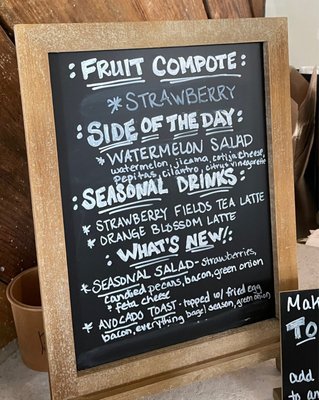 : FRUIT COMPOTE :
* STRAWBERRY
: SIDE OF THE DAY :
* WATERMELON SALAD
watermelon, jicama, cotija cheese,
pepitas, cilantro, citrus vinegarette
: SEASONAL DRINKS :
* STRAWBERRY FIELDS TEA LATTE
* ORANGE BLOSSOM LATTE
: WHAT'S NEW! :
* SEASONAL SALAD - strawberries,
candied pecans, bacon, green onion
feta cheese
* AVOCADO TOAST - topped w/ fried egg
bacon, everything bagel season, green onion
MAK
TO
add
to an